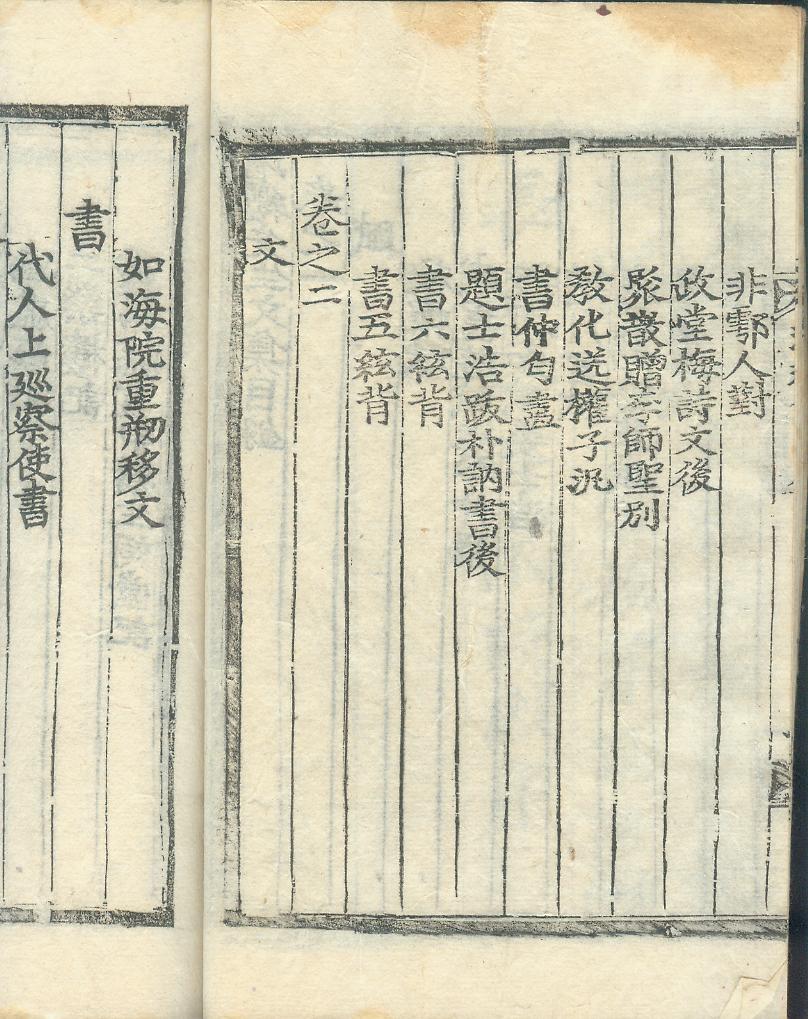 非鄠人對
政堂梅詩文後
聚散贈李師聖別
敎化送權子汎
書仲勻畫
題士浩跋朴訥書後
書六絃背
書五絃背
卷之二
文
如海院重刱移文
書
代人上廵察使書